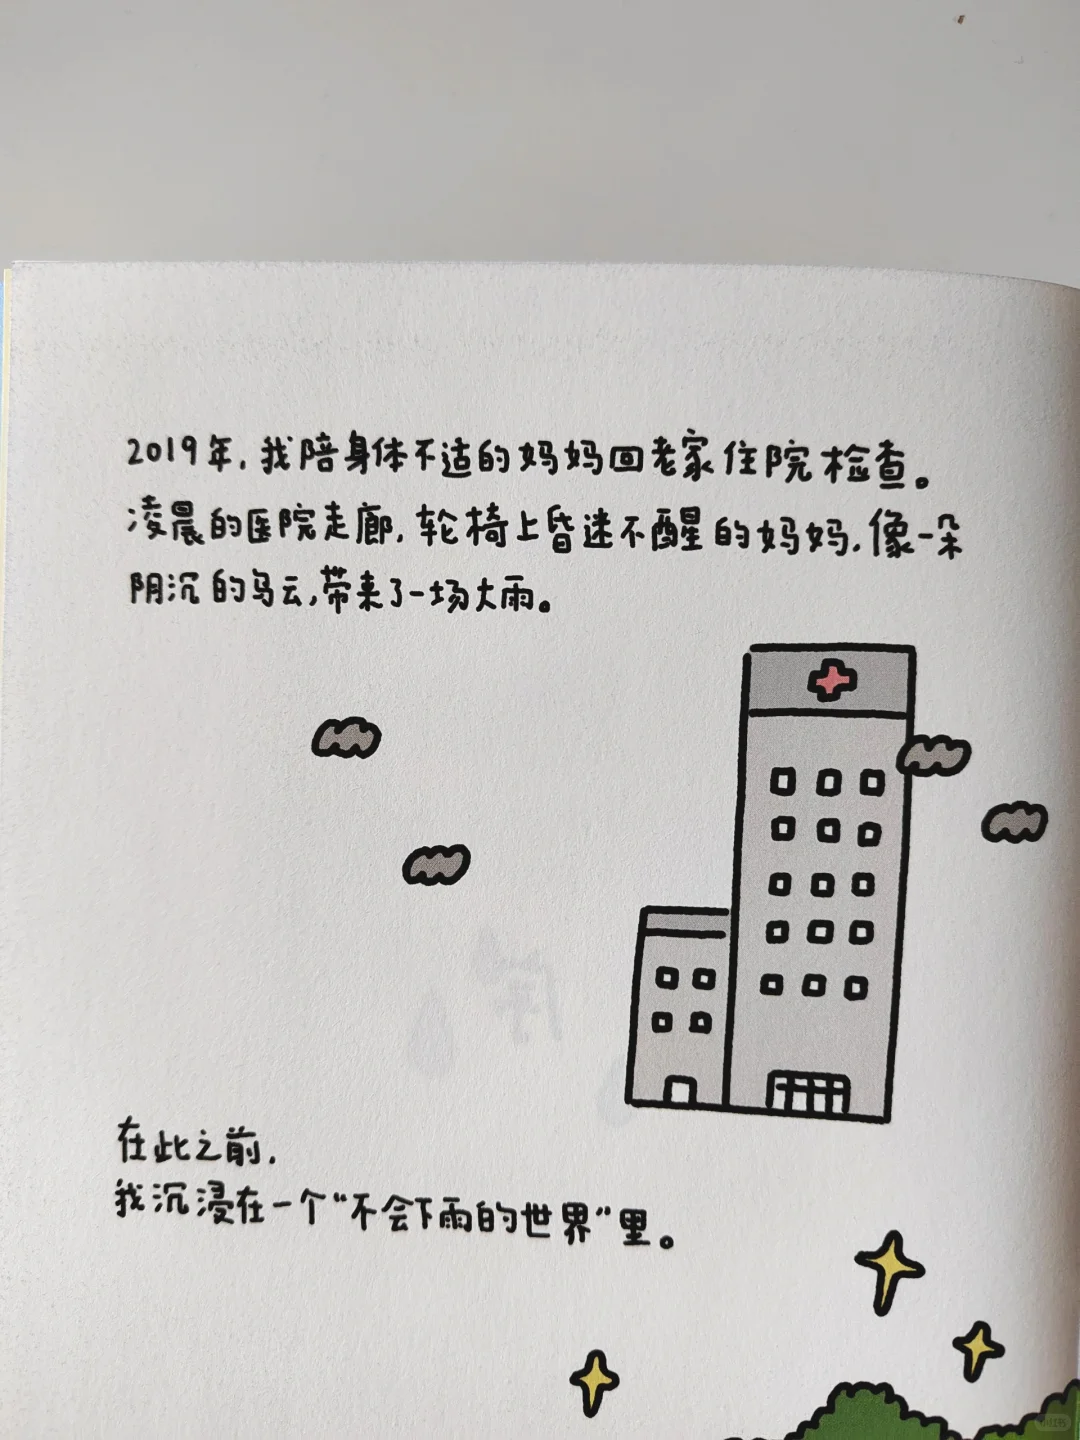 2019年,我陪身体不适的妈妈回老家住院检查。
凌晨的医院走廊,轮椅上昏迷不醒的妈妈,像一朵
阴沉的乌云,带来了一场大雨。
在此之前,
我沉浸在一个“不会下雨的世界”里。